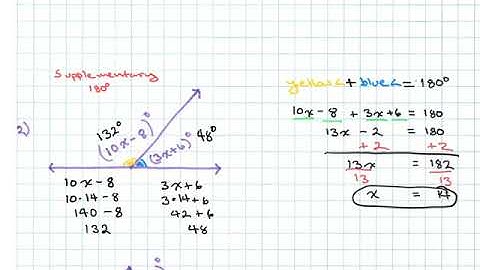 Supplementary
180°
2)
132°
(10x-8)°
48°
(3x+6)°
10x-8
10·14-8
140-8
132
3x+6
3·14+6
42+6
48
yellow∠+blue∠=180°
10x-8 + 3x+6 = 180
13x - 2 = 180
+2 +2
13x = 182
13 13
x = 14